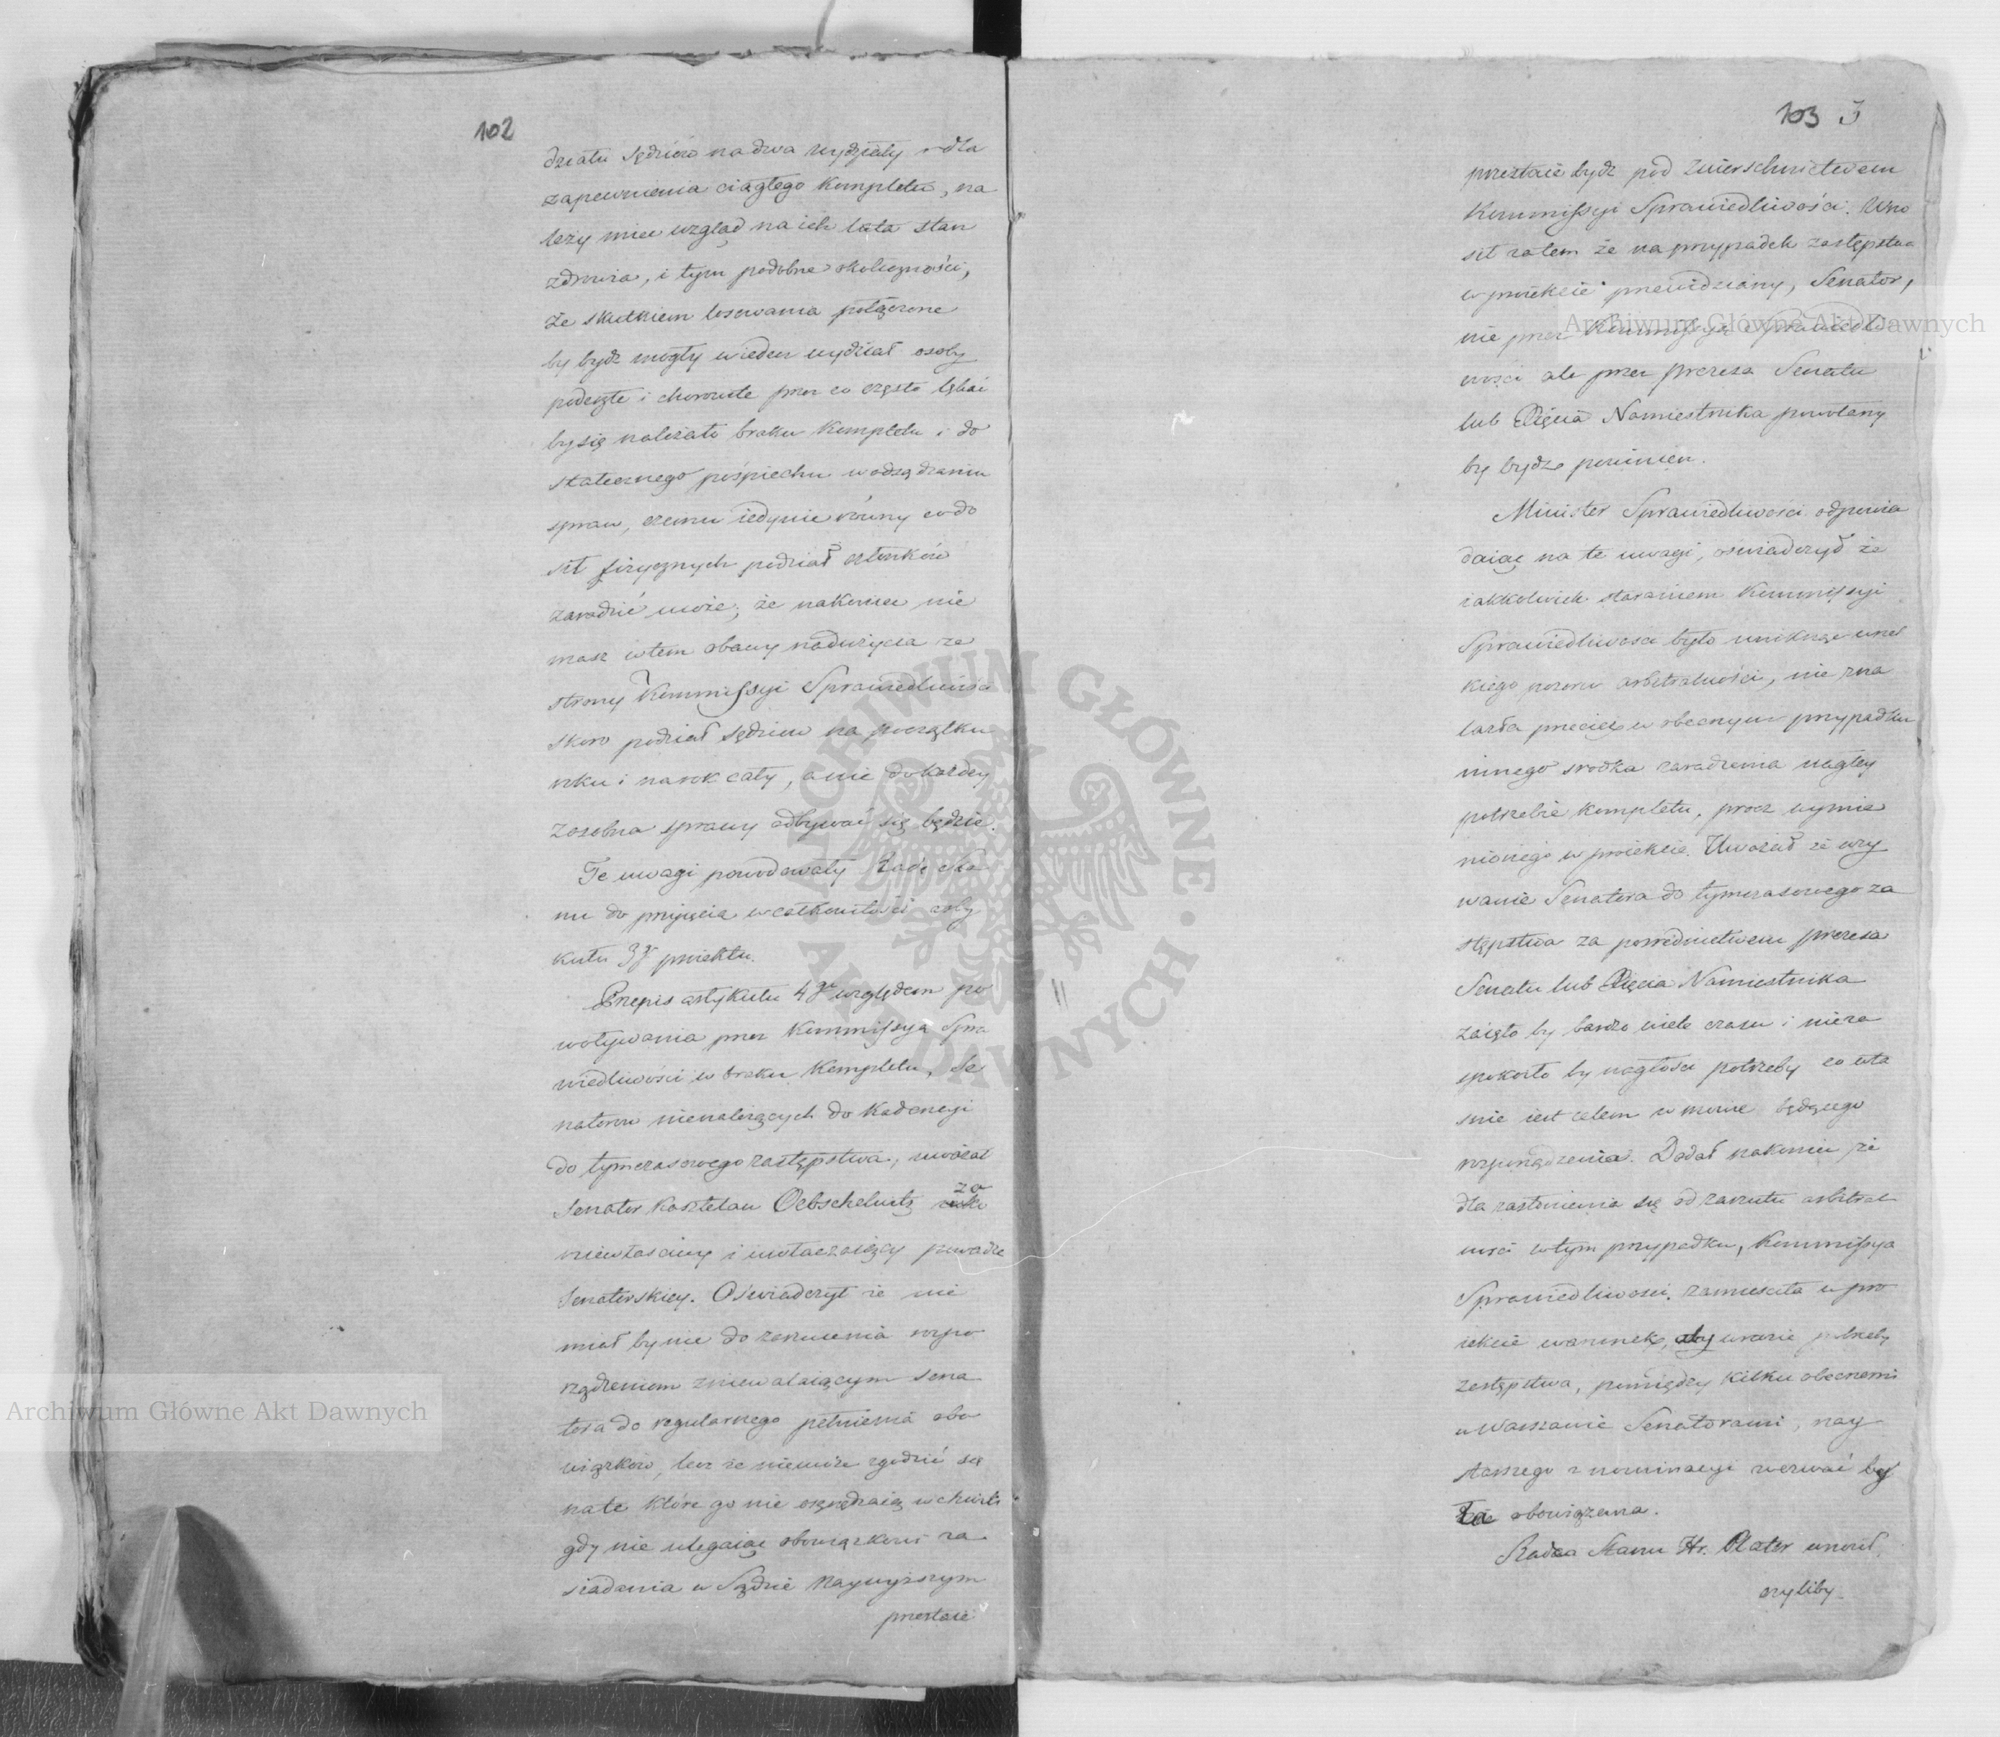 102
działu Sędziów na dwa wydziały dla
zapewnienia ciągłego Kompletu, na
leży mieć wzgląd na ich lata stan
zdrowia, i tym podobne okoliczności,
że skutkiem losowania połączone
by bydź mogły wieden wydział osoby
podeszłe i chorowite przez co często lękać
by się należało braku Kompletu i do
statecznego pośpiechu w odsądzaniu
spraw, czemu iedynie równy co do
sił fizycznych podział członków
zaradzić może; że nakoniec nie
masz wtem obawy nadużycia ze
strony Kommissyi Sprawiedliwości
skoro podział Sędziów na początku
roku i na rok cały, a nie do każdey
zosobna sprawy odbywać się będzie.
Te uwagi powodowały Radę Sta
nu do przyjęcia w całkowitości arty
kułu 3go proiektu.
Przepis artykułu 4go względem po
woływania przez Kommissyą Spra
wiedliwości w braku Kompletu, Se
natorów nienależących do Kadencyi
do tymczasowego zastępstwa, uważał
Senator Kasztelan Oebschelwitz za
niewłaściwy i uwłaczaiący powadze
Senatorskiey. Oświadczył że nie
miał by nic do zarzucenia rozpo
rządzeniom zniewalaiącym Sena
tora do regularnego pełnienia obo
wiązków, lecz że niemoże zgodzić się
na te które go nie oszczędzaią w chwili
gdy nie ulegaiąc obowiązkowi za
siadania w Sądzie Naywyższym
przestaie
103 3
przestaie bydź pod zwierzchnictwem
Kommissyi Sprawiedliwości. Wno
sił zatem że na przypadek zastępstwa
w proiekcie przewidziany, Senator,
nie przez Kommissyą Sprawiedli
wości ale przez Prezesa Senatu
lub Xięcia Namiestnika powołany
by bydź powinien.
Minister Sprawiedliwości odpowia
daiąc na te uwagi, oświadczył że
iakkolwiek staraniem Kommissyi
Sprawiedliwości było uniknąć wszel
kiego pozoru arbitralności, nie zna
lazła przecież w obecnym przypadku
innego srodka zaradzenia nagłey
potrzebie kompletu, prócz wymie
nionego w proiekcie. Uważał że wzy
wanie Senatora do tymczasowego za
stępstwa za posrednictwem prezesa
Senatu lub Xięcia Namiestnika
zaięło by bardzo wiele czasu i nieza
spokoiło by nagłości potrzeby co wła
śnie iest celem w mowie będącego
rozporządzenia. Dodał nakoniec że
dla zasłonienia się od zarzutu arbitral
ności w tym przypadku, Kommissya
Sprawiedliwości zamieściła w pro
iekcie warunek, aby w razie potrzeby
zastępstwa, pomiędzy kilku obecnemi
w Warszawie Senatorami, nay
starszego z nominacyi wezwać by
ła obowiązana.
Radca Stanu Hr. Plater wnosił,
czyliby
Archiwum Główne Akt Dawnych
Archiwum Główne Akt Dawnych
ARCHIWUM GŁÓWNE AKT DAWNYCH